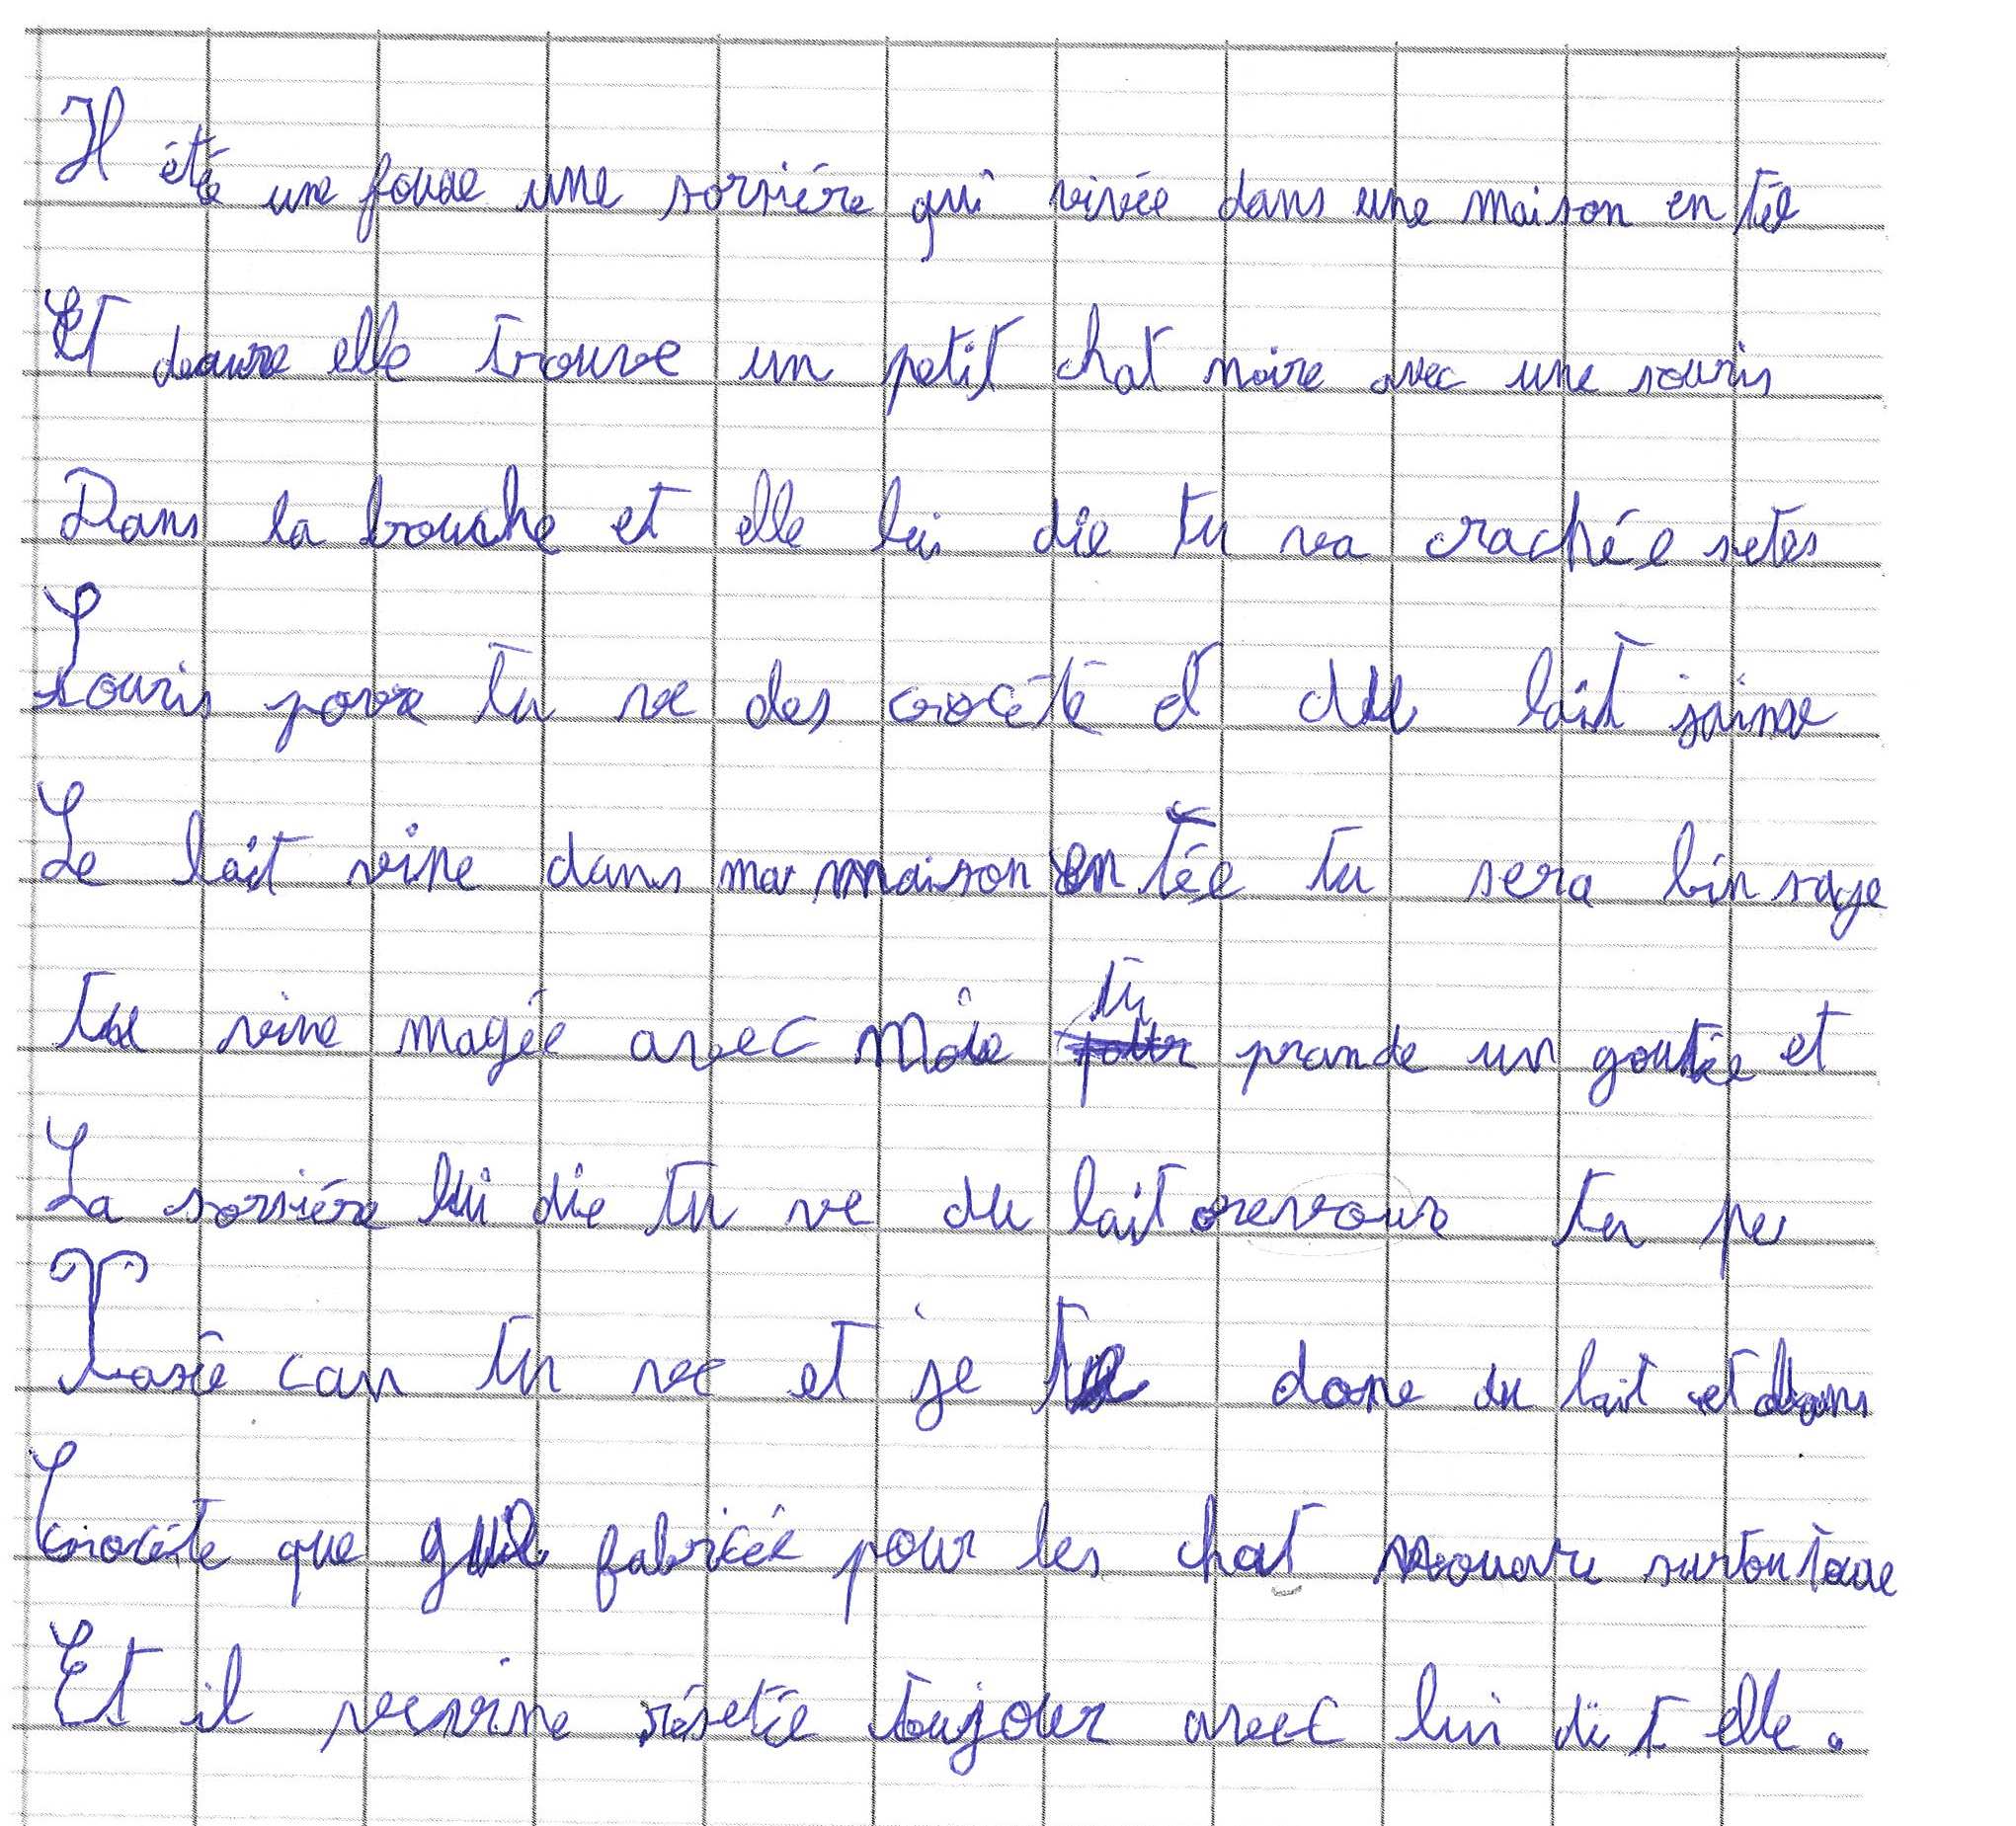 Il été une fouae une sorsiére qui vivée dans une maison en tée
Et deaure elle trouve un petit chat noire avec une souris
Dans la bouche et elle lui die tu va crachée setes
Souris povre tu ve des crocéte et du lait jaime
Le lait vine dans ma maison en tée tu sera bin saje
tu vine magée avec moie tu prande un goutée et
La sorsiére lui die tu ve du lait orevoure tu pe
Pasée can tu vec et je te done du lait et dans
Crocéte que fabricée pour les chat surtoutoue
Et il revine résetée toujour avec lui dit elle.